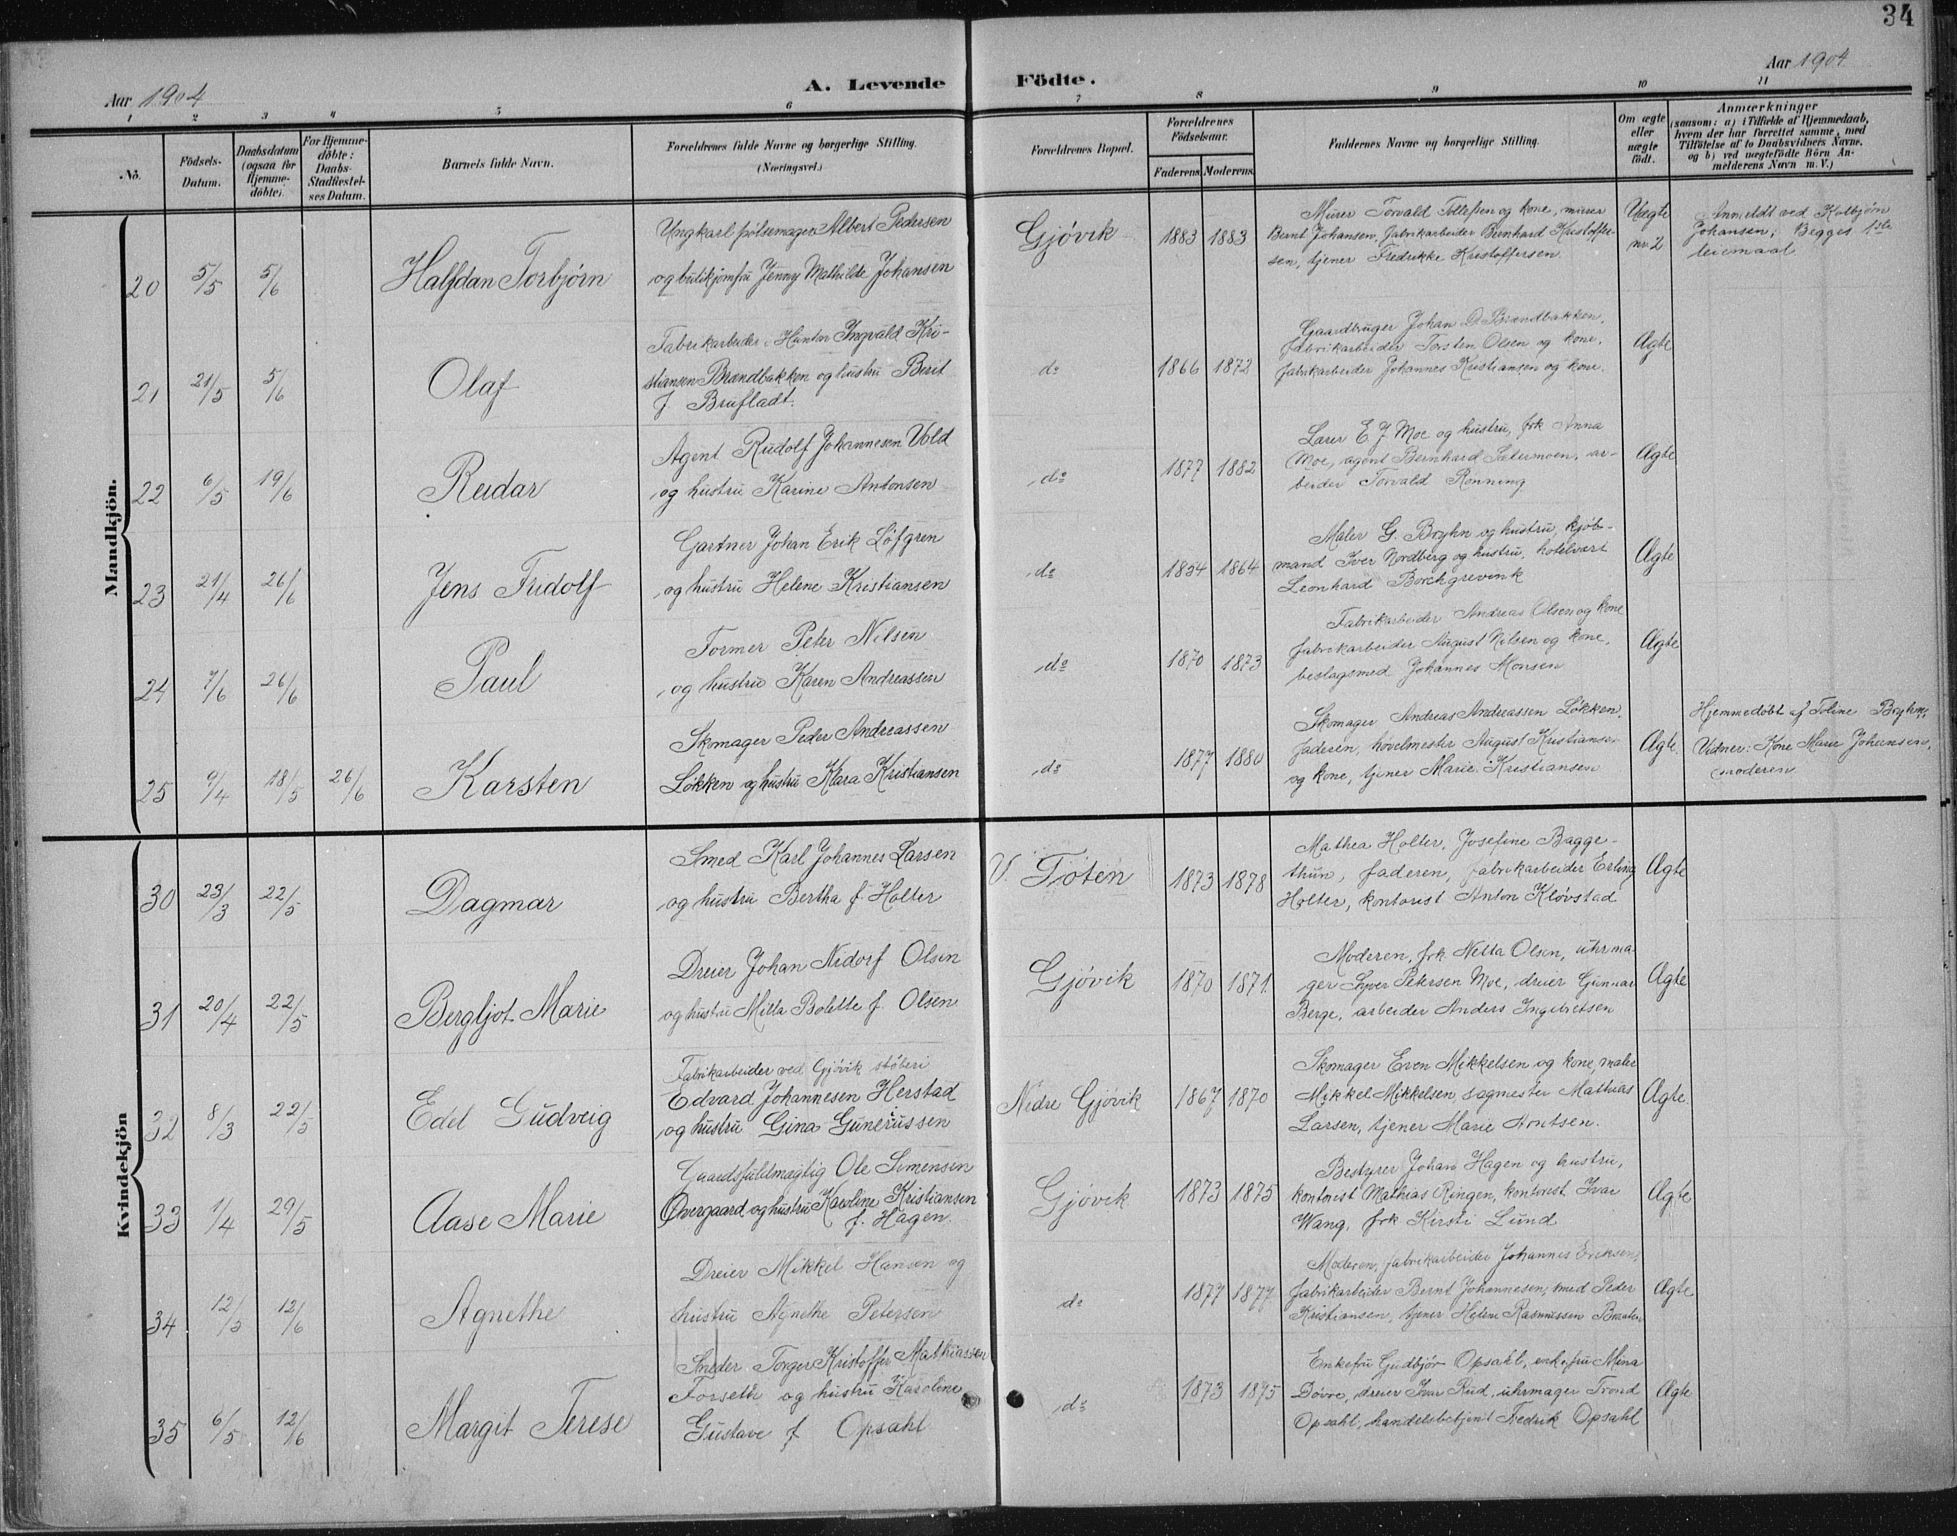 34
Aar 1904
A. Levende Födte.
Aar 1904
1 2 3 4 5 6 7 8 9 10 11
No.
Födsels-
Datum.
Daabsdatum
(ogsaa for
Hjemme-
döbte).
For Hjemme-
döbte:
Daabs-
Stadfæstel-
ses Datum.
Barnets fulde Navn.
Forældrenes fulde Navne og borgerlige Stilling.
(Næringsvei.)
Forældrenes Bopæl.
Forældrenes
Födselsaar.
Faderens. Moderens.
Faddernes Navne og borgerlige Stilling.
Om ægte
eller
uægte
födt.
Anmærkninger
(saasom: a) i Tilfælde af Hjemmedaab,
hvem der har forrettet samme, med
Tilföielse af to Daabsvidners Navne,
og b) ved uægtefödte Börn An-
melderens Navn m. V.)
Mandkjön.
20 5/5 5/6 Halfdan Torbjørn
Ungkarl pølsemager Albert Pedersen
og butikjomfru Jenny Mathilde Johansen
Gjøvik 1883 1883
Murer Torvald Tollefsen og kone, murer
Bernt Johansen, fabrikarbeider Bernhard Kristoffer-
sen, tjener Fredrikke Kristoffersen.
Uægte
nr. 2
Anmeldt ved Kolbjørn
Johansen; Begges 1ste
leiemaal
21 21/5 5/6 Olaf
Fabrikarbeider Ingvald Kri-
stiansen Brændbakken og hustru Berit
f Brufladt.
do 1866 1872
Gaardbruger Johan D Brændbakken,
fabrikarbeider Torsten Olsen og kone,
fabrikarbeider Johannes Kristiansen og kone.
Ægte
22 6/5 19/6 Reidar
Agent Rudolf Johannesen Vold
og hustru Karine Antonsen
do 1877 1882
Lærer E. J. Moe og hustru, frk Anna
Moe, agent Bernhard Sætermoen, ar-
beider Torvald Rønning
Ægte
23 21/4 26/6 Jens Fridolf
Gartner Johan Erik Løfgren
og hustru Helene Kristiansen
do 1854 1864
Maler G. Bryhn og hustru, kjøb-
mand Iver Nordberg og hustru, hotelvært
Leonhard Borchgrevink
Ægte
24 7/6 26/6 Paul
Former Peter Nilsen
og hustru Karen Andreassen
do 1870 1873
Fabrikarbeider Andreas Olsen og kone
fabrikarbeider August Nilsen og kone,
beslagsmed Johannes Monsen
Ægte
25 9/4 18/5 26/6 Karsten
Skomager Peder Andreassen
Løkken og hustru Klara Kristiansen
do 1877 1880
Skomager Andreas Andreassen Løkken,
faderen, høvelmester August Kristiansen
og kone, tjener Marie Kristiansen
Ægte.
Hjemmedøbt af Toline Bryhn;
Vidner: Kone Marie Johansen,
moderen
Kvindekjön
30 23/3 22/5 Dagmar
Smed Karl Johannes Larsen
og hustru Bertha f. Holter
V. Toten 1873 1878
Mathea Holter, Josefine Bagge-
thun, faderen, fabrikarbeider Erling
Holter, kontorist Anton Kløvstad
Ægte
31 20/4 22/5 Bergljot Marie
Dreier Johan Nidorf Olsen
og hustru Milla Bolette f. Olsen
Gjøvik 1870 1871.
Moderen, frk Netta Olsen, uhrma-
ger Syver Petersen Moe, dreier Gunnar
Berge, arbeider Anders Ingebretsen
Ægte
32 8/3 22/5 Edel Gudveig
Fabrikarbeider ved Gjøvik støberi
Edvard Johannesen Herstad
og hustru Gina Gunerussen
Nedre Gjøvik 1867 1870
Skomager Even Mikkelsen og kone, maler
Mikkel Mikkelsen, sagmester Mathias
Larsen, tjener Marie Arntsen.
Ægte
33 1/4 29/5 Aase Marie
Gaardsfuldmægtig Ole Simensen
Øvergaard og hustru Karoline Kristiansen
f. Hagen.
Gjøvik 1873 1875
Bestyrer Johan Hagen og hustru,
kontorist Mathias Ringen, kontorist Ivar
Wang, frk Kirsti Lund
Ægte
34 12/5 12/6 Agnethe
Dreier Mikkel Hansen og
hustru Agnethe Petersen
do 1877 1877
Moderen, fabrikarbeider Johannes Eriksen,
fabrikarbeider Bernt Johannesen, smed Peder
Kristiansen, tjener Helene Rasmussen Braaten
Ægte
35 6/5 12/6 Margit Terese
Smeder Torger Kristoffer Mathiassen
Forseth og hustru Karoline
Gustave f Opsahl
do 1873 1875
Enkefru Gudbjør Opsahl, enkefru Mina
Dovre, dreier Ivar Rud, uhrmager Trond
Opsahl, handelsbetjent Fredrik Opsahl
Ægte